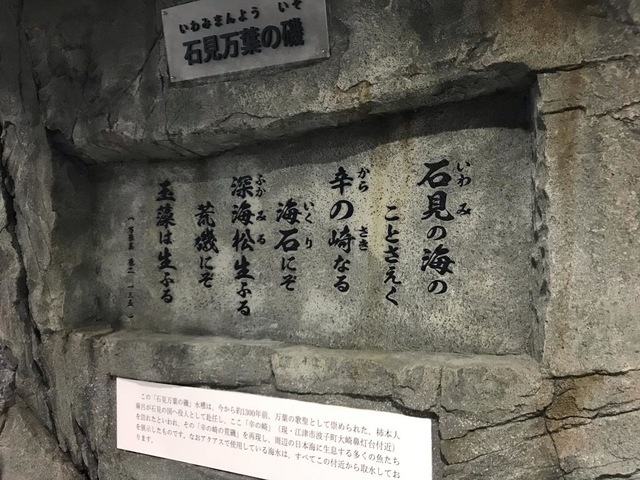 いわみまんよう いそ
石見万葉の磯
いわ み
石見の海の
ことさえく
から さき
辛の崎なる
いくり
海石にぞ
ふか み る
深海松生ふる
荒磯にぞ
玉藻は生ふる
（万葉集 巻二 一三五）
この「石見万葉の磯」水槽は、今から約1300年前、万葉の歌聖として崇められた、柿本人
麻呂が石見の国へ役人として赴任し、ここ「辛の崎」（現・江津市波子町大崎鼻灯台付近）
を訪れたといわれ、その「辛の崎の荒磯」を再現し、周辺の日本海に生息する多くの魚たち
を展示したものです。なおアクアスで使用している海水は、すべてこの付近から取水してお
ります。